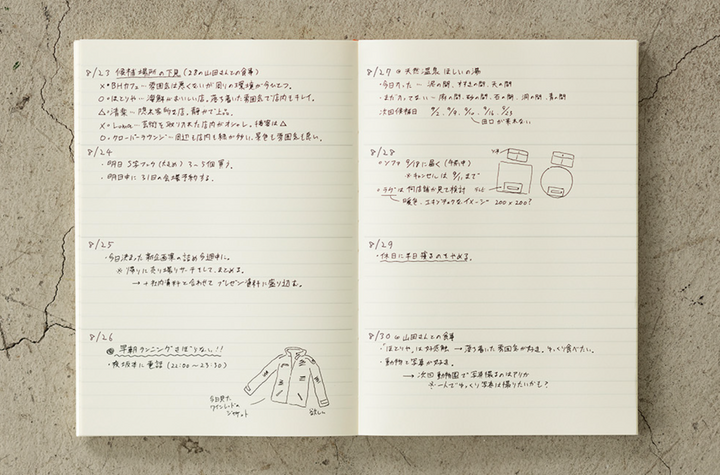 8/23 候補場所の下見（28の山田さんとの食事）
×・BHカフェ〜雰囲気は悪くないが周りの環境が今ひとつ。
○・ほてりや〜海鮮がおいしい店。落ち着いた雰囲気で店内もキレイ。
△・〜隠れ家的な店。静かで上品。
×・〜芸術を取り入れた店内がオシャレ。接客は△
○・クローバーラウンジ〜周辺も店内も緑が多い。景色も雰囲気も良い。
8/24
・明日 S字フック（大きめ）3〜5個買う。
・明日中に31日の会場予約する。
8/25
・今日決まった新企画案の詰め今週中に。
※帰りに売り場リサーチをして、まとめる。
→＋社内資料と合わせてプレゼン資料に盛り込む。
8/26
早朝ランニングさぼりなし!!
・坂本に電話（22:00〜23:30）
今日見た
ワインレッドの
ジャケット
欲しい
8/27 @ 天然温泉 ほしいの湯
・今日入った〜泥の間、すすきの間、天の間
・まだ入ってない〜雨の間、砂の間、石の間、洞の間、昔の間
次回候補日 9/2、9/9、9/10、9/16、9/23
8/28
・ソファ 9/18に届く（午前中）
※キャンセルは9/1まで
・ラグは何店舗か見て検討
暖色、エキゾチックなイメージ 200×200?
8/29
・休日に本日積るのをやめる。
8/30 @ 山田さんとの食事
・「ほてりや」は好感触 → 落ち着いた雰囲気が好き。ゆっくり食べたい。
・動物と写真が好き。
→ 次回動物園で写真撮るのはアリか
※一人でゆっくり写真は撮りたいかも?